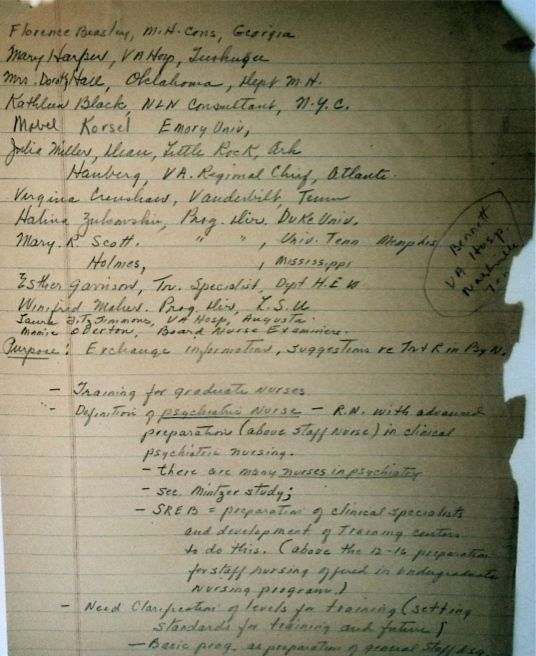 Florence Beasley, M.H. Cons, Georgia
Mary Harper, VA Hosp, Tuskegee
Mrs. Dorothy Hall, Oklahoma, Dept M.H.
Kathleen Black, NLN Consultant, N.Y.C.
Mabel Korsel Emory Univ,
Julia Miller, Dean, Little Rock, Ark
Hanberg, VA. Regional Chief, Atlanta
Virginia Crenshaw, Vanderbilt, Tenn
Halina Prog. Dir. Duke Univ.
Mary. R. Scott. " " , Univ. Tenn Memphis
Holmes, , Mississippi
Bennett
VA Hosp.
Nashville
Tenn
Esther Garrison, Trn. Specialist, Dept H.E.W.
Winifred Maher. Prog Dir, L.S.U
Laura Fitzsimmons, VA Hosp, Augusta
Overton, Board Nurse Examiners.
Purpose: Exchange information, suggestions re Trn & R in Psy N.
- Training for graduate nurses
- Definition of psychiatric nurse - R.N. with advanced
preparation (above staff nurse) in clinical
psychiatric nursing.
- there are many nurses in psychiatry
- see Mintzer study;
- SREB = preparation of clinical specialists
and development of Training centers
to do this. (above the 12-16 preparation
for staff nursing offered in undergraduate
nursing programs)
- Need Clarification of levels for training (setting
standards for training and future)
- Basic prog. as preparation of general staff